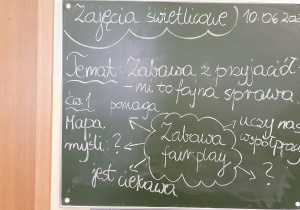 Zajęcia świetlicowe 10.06.202
Temat: Zabawa z przyjaciół
- mi to fajna sprawa
ćw. 1 pomaga
Mapa Zabawa uczy nas
myśli: ? fair play współprac
jest ciekawa ?